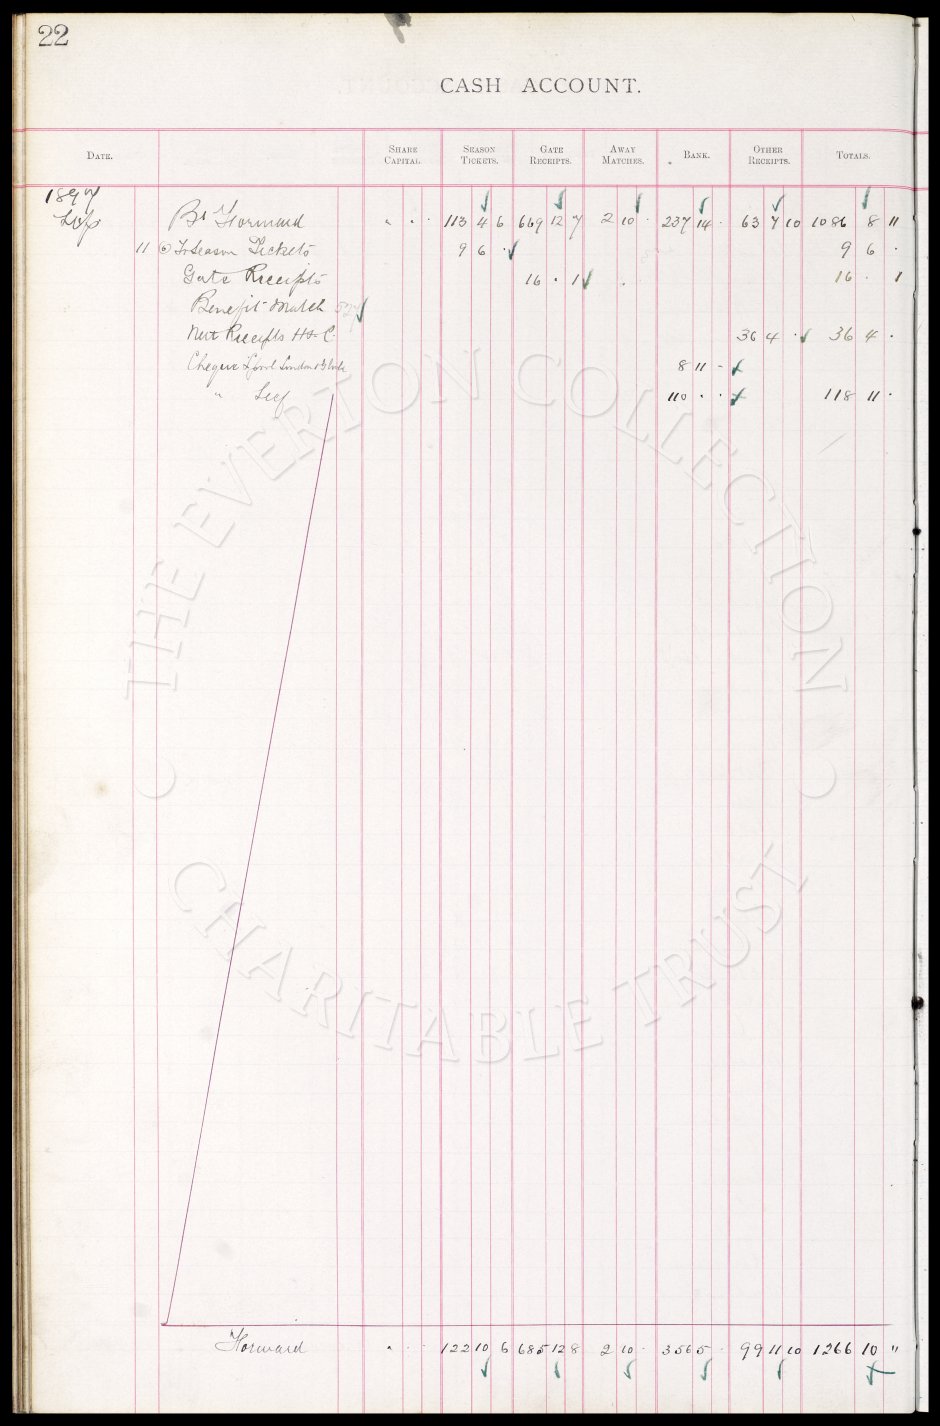 22
CASH ACCOUNT.
DATE. SHARE CAPITAL. SEASON TICKETS. GATE RECEIPTS. AWAY MATCHES. BANK. OTHER RECEIPTS. TOTALS.
1897
Bt Forward " . . 113 4 6 669 12 7 2 10 . 237 14 . 63 7 10 1086 8 11
11 Season Tickets 9 6 . 9 6 .
Gate Receipts 16 . 1 16 . 1
Benefit Match
Nett Receipts 36 4 . 36 4 .
Cheque L'pool London 8 11 -
" 110 . . 118 11 .
Forward " . . 122 10 6 685 12 8 2 10 . 356 5 . 99 11 10 1266 10 "
THE EVERTON COLLECTION
CHARITABLE TRUST